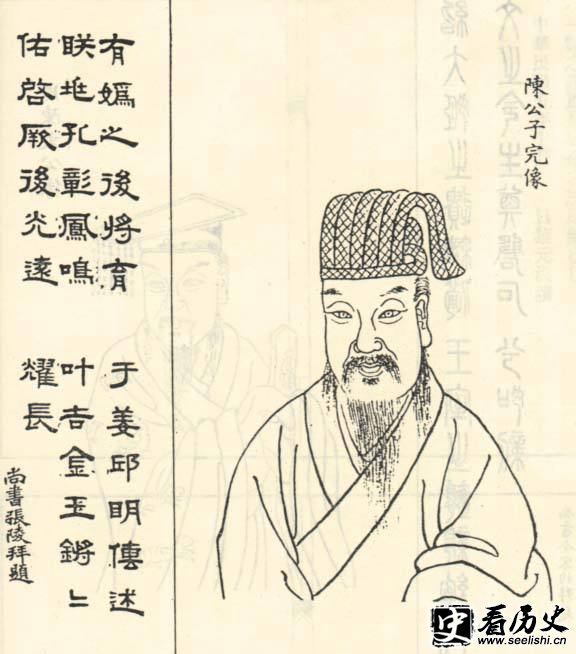 陳公子完像
有媯之後將育于姜邱明傳述
眹垗孔彰鳳鳴叶吉金玉鏘〻
佑啓厥後光遠耀長
尚書張陵拜題
史 看历史
www.seelishi.cn